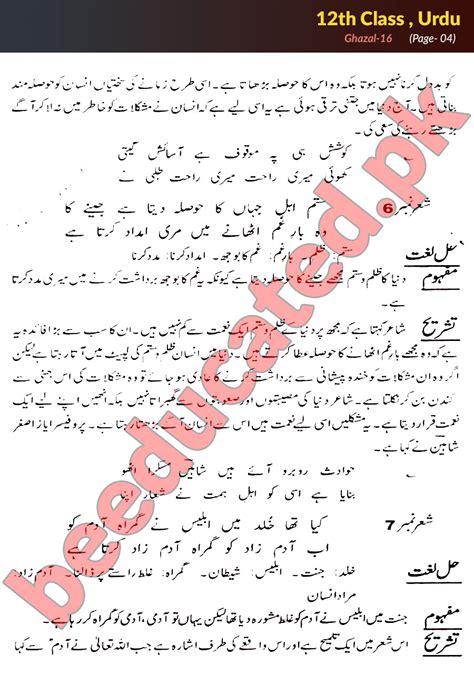 12th Class , Urdu
Ghazal-16 (Page- 04)
کو بددل کرنا نہیں ہوتا بلکہ وہ اس کا حوصلہ بڑھاتا ہے۔ اسی طرح زمانے کی سختیاں انسان کو حوصلہ مند
بناتی ہیں۔ آج دنیا میں جتنی ترقی ہوئی ہے یہ اسی لیے ہے کہ انسان نے مشکلات کو خاطر میں نہ لا کر آگے
بڑھتے رہنے کی سعی کی۔
کوشش ہی پہ موقوف ہے آسائش گیتی
کھوئی میری راحت میری راحت طلبی نے
شعر نمبر 6 ستم اہل جہاں کا حوصلہ دیتا ہے جینے کا
وہ بار غم اٹھانے میں مری امداد کرتا ہے
حل لغت ستم: ظلم۔ بارغم: غم کا بوجھ۔ امداد کرنا: مدد کرنا
مفہوم دنیا کا ظلم و ستم مجھے جینے کا حوصلہ دیتا ہے کیونکہ یہ غم کا بوجھ برداشت کرنے میں میری مدد کرتا
ہے۔
تشریح شاعر کہتا ہے کہ مجھ پر دنیا کے ظلم و ستم ایک نعمت سے کم نہیں ہیں۔ ان کا سب سے بڑا فائدہ یہ
ہے کہ وہ مجھے بارغم اٹھانے کا حوصلہ عطا کرتے ہیں۔ دنیا میں انسان ظلم و ستم کی لپیٹ میں آتا رہتا ہے لیکن
اگر وہ ان مشکلات کو خندہ پیشانی سے برداشت کرنے کا عادی ہو جائے تو وہ مشکلات کی اس بھٹی سے
کندن بن کر نکلتا ہے۔ شاعر دنیا کی مصیبتوں اور صعوبتوں سے گھبراتا نہیں بلکہ انھیں اپنے لیے ایک
نعمت قرار دیتا ہے۔ یہ مشکلیں اسی لیے نعمت ہیں کہ اس سے انسان آگے بڑھتا رہتا ہے۔ پروفیسر ایاز اصغر
شاہین نے کہا ہے
حوادث روبرو آئے ہیں شاہیں مسکرا اٹھو
بنایا ہے اسی کو اہل ہمت نے شعار اپنا
شعر نمبر 7 کیا تھا خلد میں ابلیس نے گمراہ آدم کو
اب آدم زاد کو گمراہ آدم زاد کرتا ہے
حل لغت خلد: جنت۔ ابلیس: شیطان۔ گمراہ: غلط راستے پر ڈالنا۔ آدم زاد:
مراد انسان
مفہوم جنت میں ابلیس نے آدم کو غلط مشورہ دیا تھا لیکن یہاں تو آدمی، آدمی کو گمراہ کر رہا ہے۔
تشریح اس شعر میں ایک تلمیح ہے اور اس واقعے کی طرف اشارہ ہے جب اللہ تعالیٰ نے آدم سے کہا
beeducated.pk